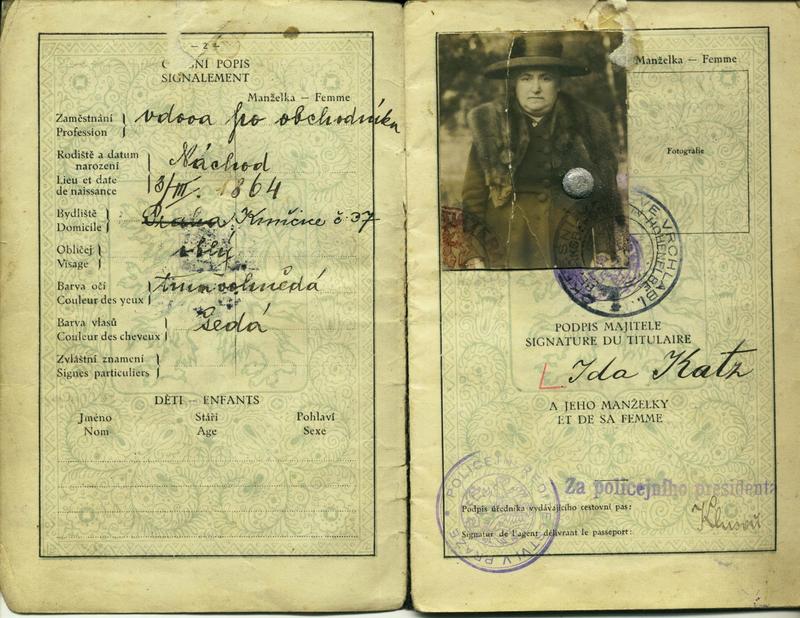 — 2 —
POPIS
SIGNALEMENT
Manželka — Femme
Zaměstnání
Profession
vdova po obchodníku
Rodiště a datum
narození
Náchod
Lieu et date
de naissance
3/III. 1864
Bydliště
Domicile
Praha č. 37
Obličej
Visage
Barva očí
Couleur des yeux
tmavohnědá
Barva vlasů
Couleur des cheveux
šedá
Zvláštní znamení
Signes particuliers
DĚTI — ENFANTS
Jméno Stáří Pohlaví
Nom Age Sexe
Manželka — Femme
Fotografie
VE VRCHLABÍ
HOHENELBE
PODPIS MAJITELE
SIGNATURE DU TITULAIRE
Ida Katz
A JEHO MANŽELKY
ET DE SA FEMME
POLICEJNÍ ŘEDITELSTVÍ V PRAZE
Za policejního presidenta
Podpis úředníka vydávajícího cestovní pas:
Signatur de l'agent délivrant le passeport: